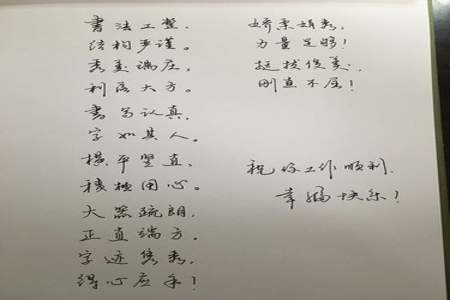 書法工整.
结构严谨。
秀美端庄,
利落大方。
書写认真,
字如其人。
横平竖直,
积极用心。
大器疏朗,
正直端方。
字迹隽秀,
得心应手!
娇柔娟秀,
力量足够!
挺拔俊美,
刚直不屈!
祝你工作顺利,
幸福快乐!